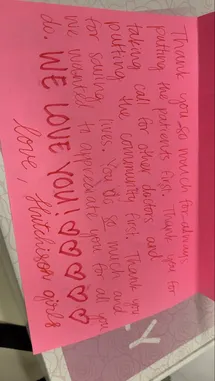 Thank you so much for always
putting the patients first. Thank you for
taking call for other doctors and
putting the community first. Thank you
for saving lives. You do so much and
we wanted to appreciate you for all you
do. WE LOVE YOU! ♡♡♡♡♡♡
love, Hutchison girls
Y